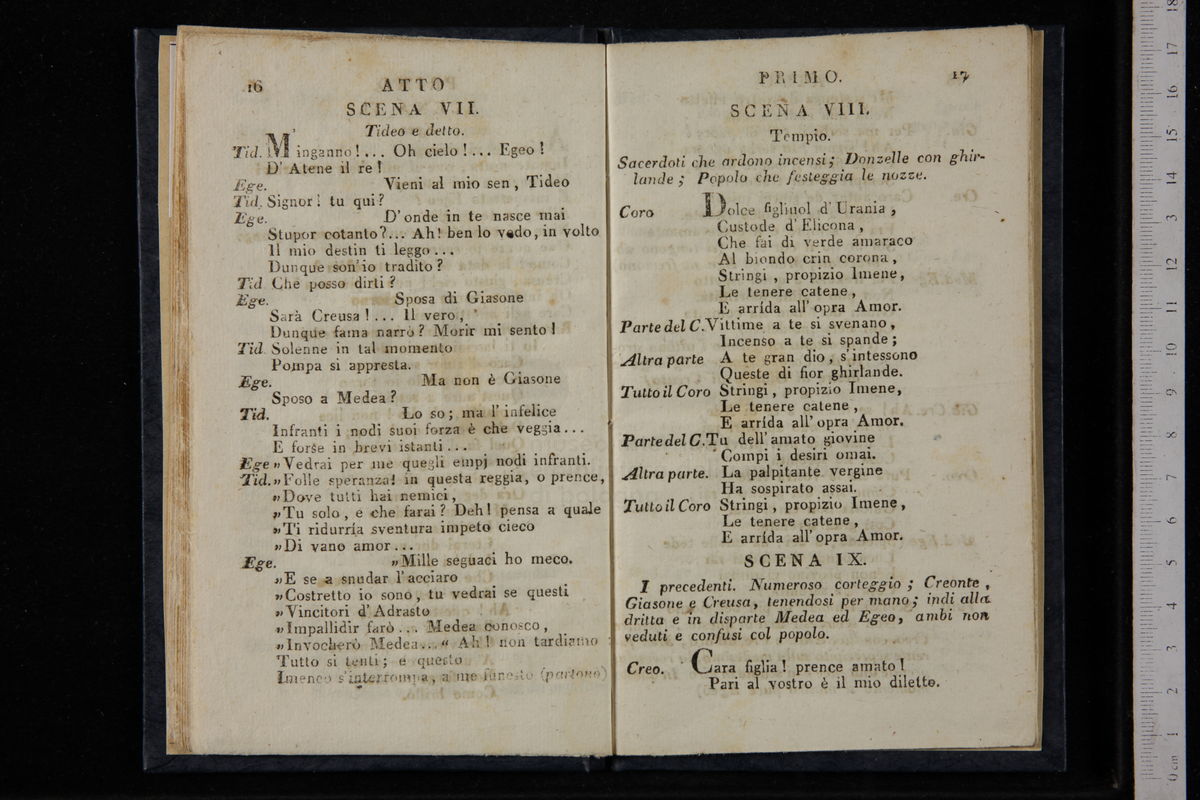 16 ATTO
SCENA VII.
Tideo e detto.
Tid. M' inganno!... Oh cielo!... Egeo!
D' Atene il re!
Ege. Vieni al mio sen, Tideo
Tid. Signor! tu qui?
Ege. D'onde in te nasce mai
Stupor cotanto?... Ah! ben lo vedo, in volto
Il mio destin ti leggo...
Dunque son'io tradito?
Tid Che posso dirti?
Ege. Sposa di Giasone
Sarà Creusa!... Il vero,
Dunque fama narrò? Morir mi sento!
Tid Solenne in tal momento
Pompa si appresta.
Ege. Ma non è Giasone
Sposo a Medea?
Tid. Lo so; ma l'infelice
Infranti i nodi suoi forza è che veggia...
E forse in brevi istanti...
Ege »Vedrai per me quegli empj nodi infranti.
Tid. »Folle speranza! in questa reggia, o prence,
»Dove tutti hai nemici,
»Tu solo, e che farai? Deh! pensa a quale
»Ti ridurría sventura impeto cieco
»Di vano amor...
Ege. »Mille seguaci ho meco.
»E se a snudar l'acciaro
»Costretto io sono, tu vedrai se questi
»Vincitori d'Adrasto
»Impallidir farò... Medea conosco,
»Invocherò Medea...“ Ah! non tardiamo
Tutto si tenti; e questo
Imeneo s'interrompa, a me funesto (partono)
PRIMO. 17
SCENA VIII.
Tempio.
Sacerdoti che ardono incensi; Donzelle con ghir-
lande; Popolo che festeggia le nozze.
Coro Dolce figliuol d'Urania,
Custode d'Elicona,
Che fai di verde amaraco
Al biondo crin corona,
Stringi, propizio Imene,
Le tenere catene,
E arrída all'opra Amor.
Parte del C. Vittime a te si svenano,
Incenso a te si spande;
Altra parte A te gran dio, s'intessono
Queste di fior ghirlande.
Tutto il Coro Stringi, propizio Imene,
Le tenere catene,
E arrída all'opra Amor.
Parte del C. Tu dell'amato giovine
Compi i desiri omai.
Altra parte. La palpitante vergine
Ha sospirato assai.
Tutto il Coro Stringi, propizio Imene,
Le tenere catene,
E arrída all'opra Amor.
SCENA IX.
I precedenti. Numeroso corteggio; Creonte,
Giasone e Creusa, tenendosi per mano; indi alla
dritta e in disparte Medea ed Egeo, ambi non
veduti e confusi col popolo.
Creo. Cara figlia! prence amato!
Pari al vostro è il mio diletto.
0 cm 1 2 3 4 5 6 7 8 9 10 11 12 13 14 15 16 17 18